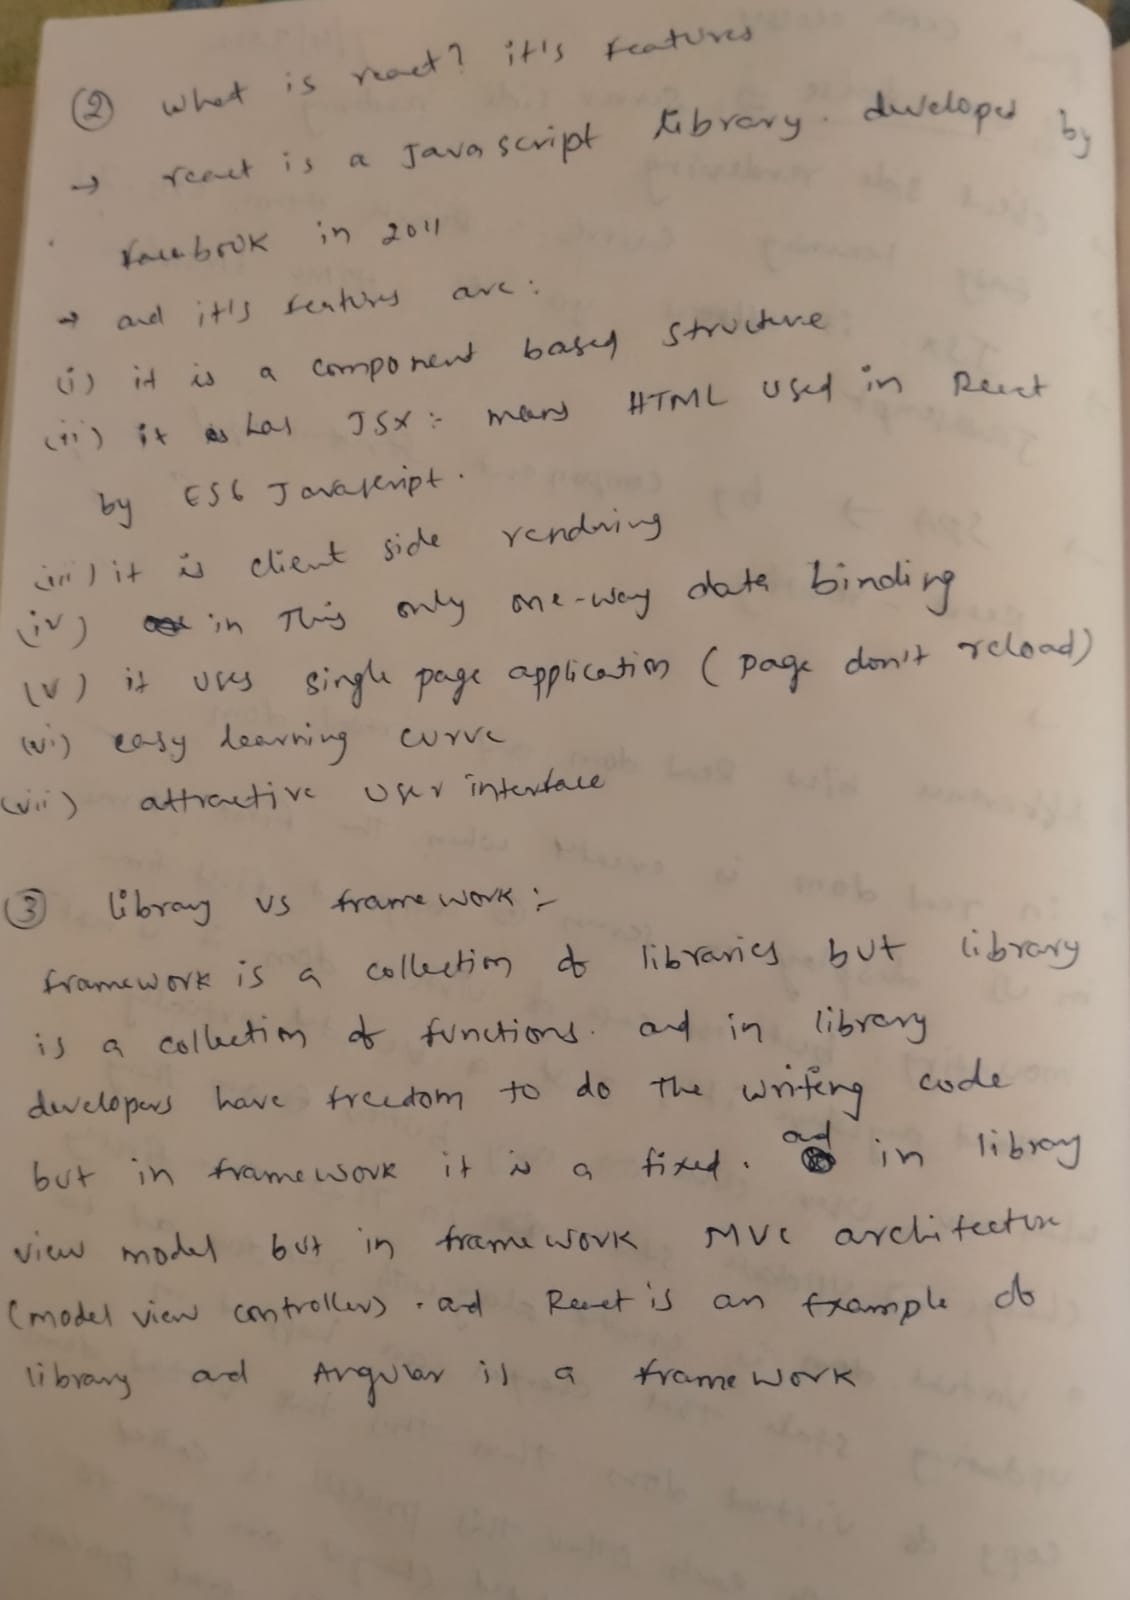 ② what is react? it's features
→ react is a Javascript library. developed by
facebook in 2011
→ and it's features are:
(i) it is a component based structure
(ii) it has JSX :- means HTML used in React
by ES6 Javascript.
(iii) it is client side rendring
(iv) in This only one-way data binding
(v) it uses single page application (page don't reload)
(vi) easy learning curve
(vii) attractive user interface
③ library vs frame work :-
framework is a collection of libraries but library
is a collection of functions. and in library
developers have freedom to do The writing code
but in framework it is a fixed. and in library
view model but in frame work MVC architecture
(model view controller) . and React is an Example of
library and Angular is a frame work